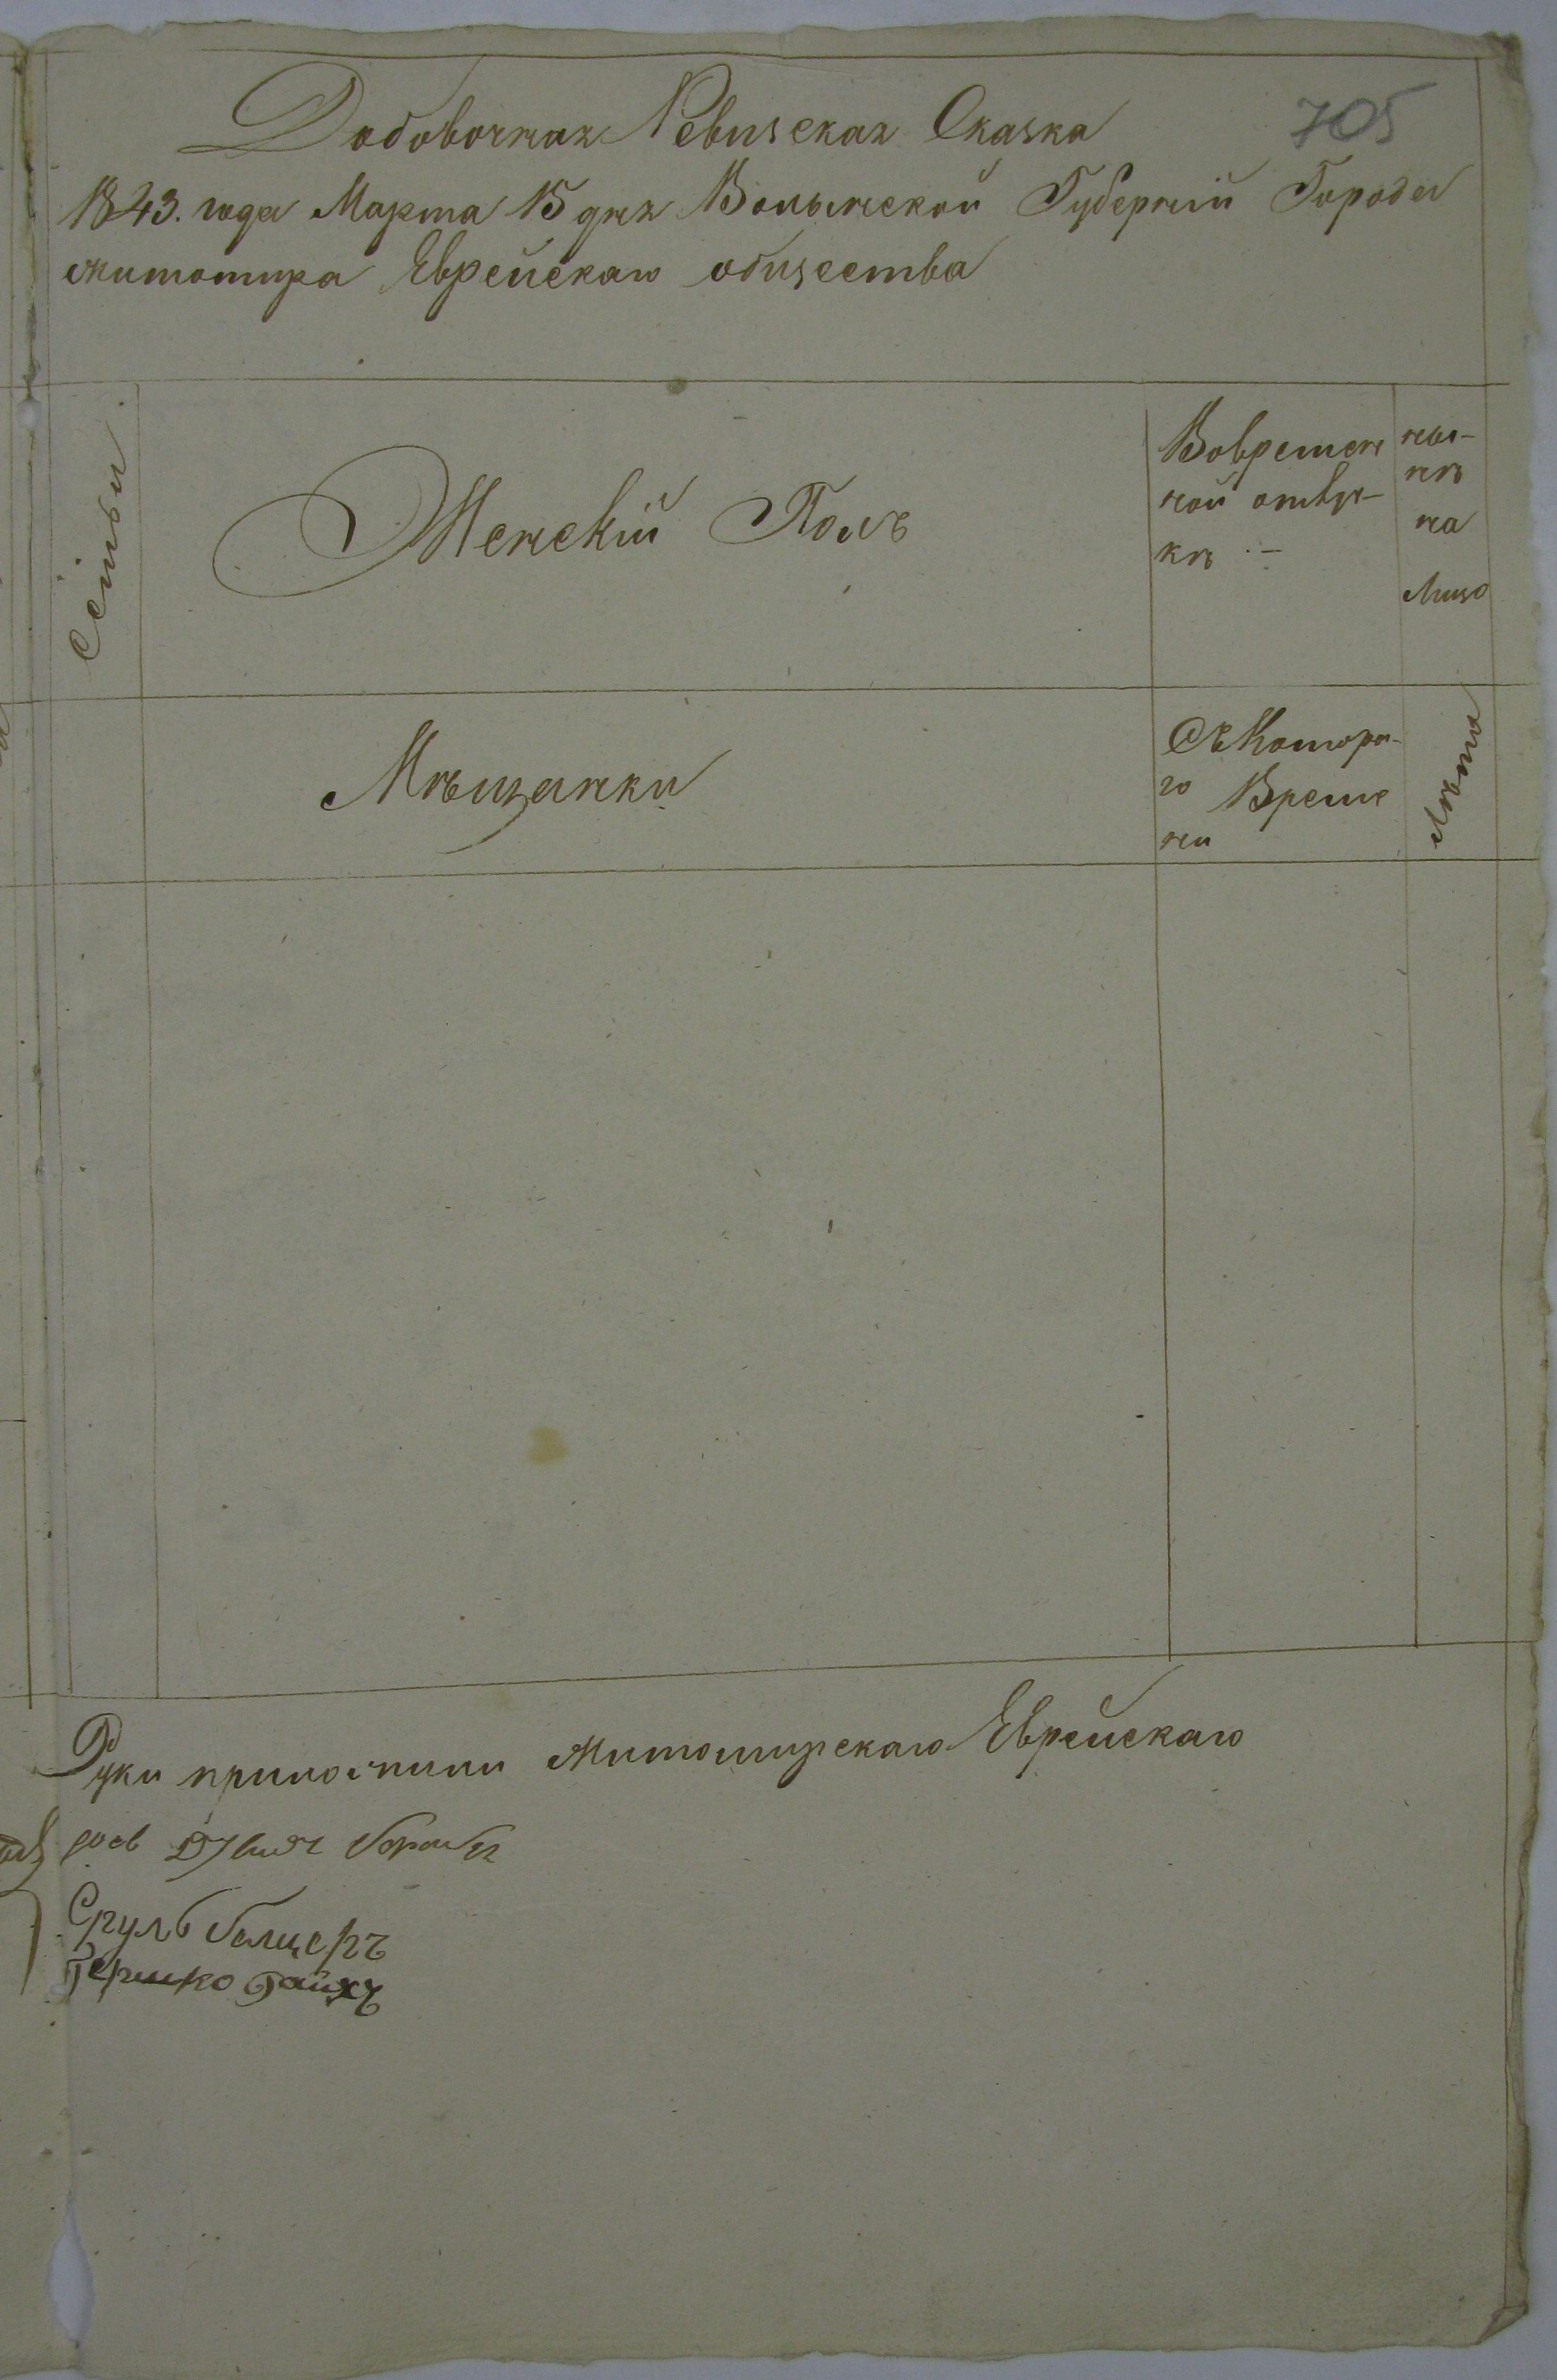 Добовочная Ревизская Сказка 705
1843. года Марта 15 дня Волынской Губерніи Города
Житомира Еврейскаго общества
Семьи
Женскій Полъ
Вовремен
ной отлу-
кѣ
ны-
нѣ
на
лицо
Мѣщанки
Съ Котора-
го Време
ни
Лѣта
Руки приложили Житомирскаго Еврейскаго
Сруль
Гершко